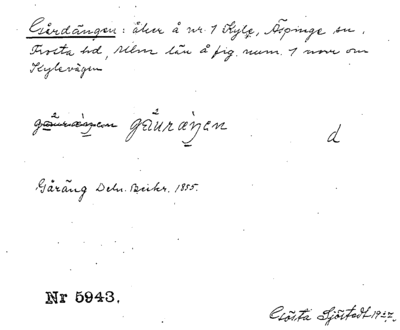 Gårdängen: åker å nr 1 Kyle, Äspinge sn,
Frosta hd, Mlm län å fig. num. 1 norr om
Kylevägen
gåuräŋen gåuräŋen d
Gåräng Deln. Beskr. 1855.
Nr 5943.
Gösta Sjöstedt 1927.